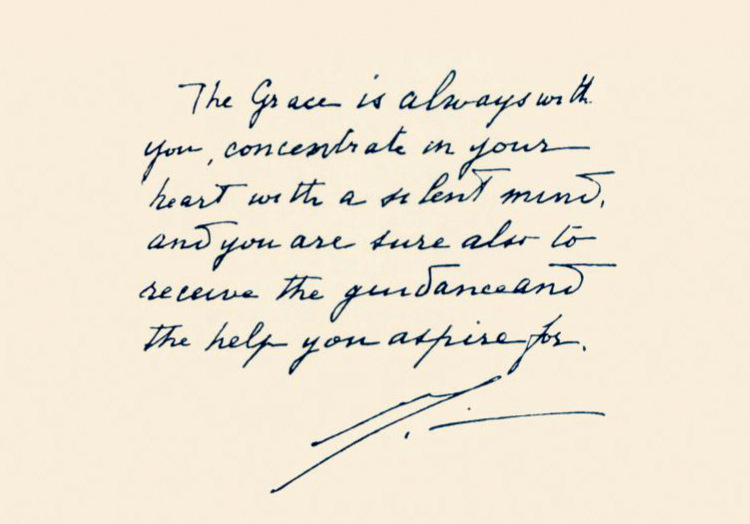 The Grace is always with
you, concentrate in your
heart with a silent mind,
and you are sure also to
receive the guidance and
the help you aspire for.